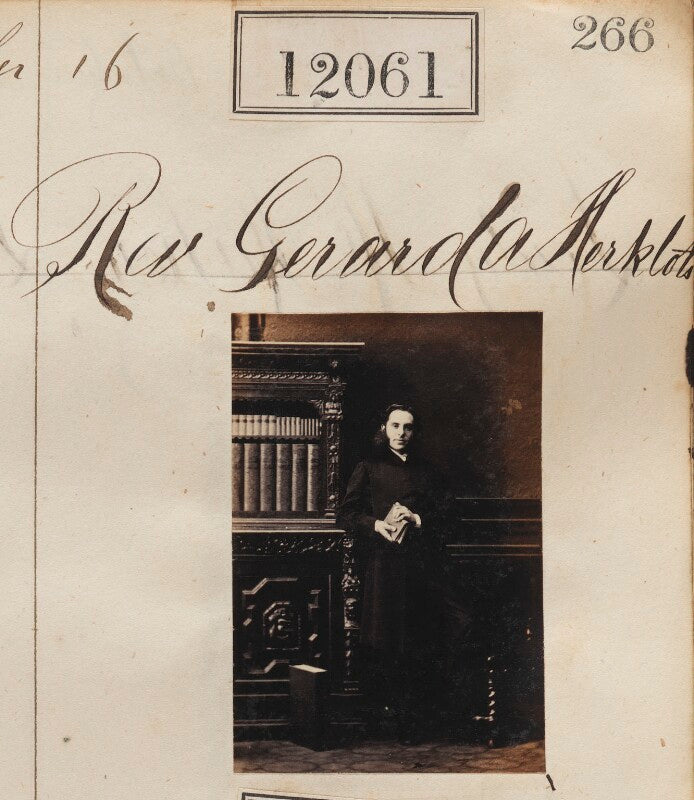 16
12061
266
Rev Gerard A Herklots